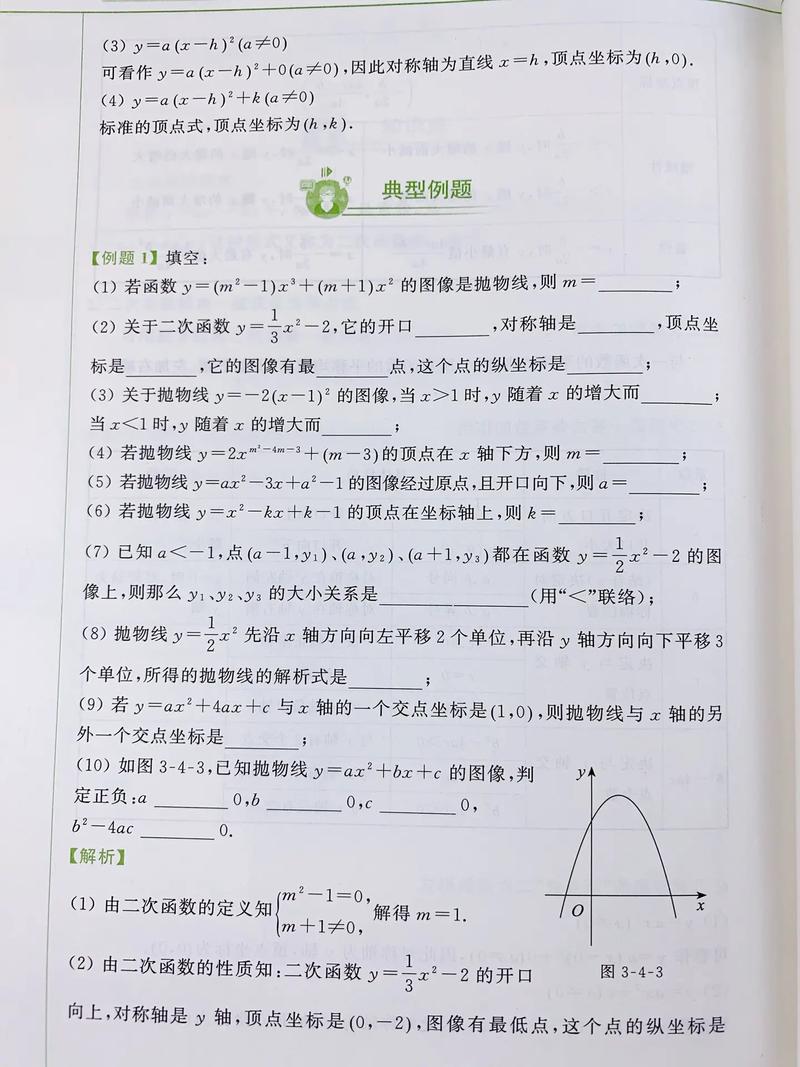 (3) y=a(x-h)²(a≠0)
可看作 y=a(x-h)²+0(a≠0),因此对称轴为直线 x=h,顶点坐标为(h,0).
(4) y=a(x-h)²+k(a≠0)
标准的顶点式,顶点坐标为(h,k).
典型例题
【例题1】填空:
(1) 若函数 y=(m²-1)x³+(m+1)x² 的图像是抛物线,则 m=________;
(2) 关于二次函数 y=1/3x²-2,它的开口________,对称轴是________,顶点坐
标是________,它的图像有最________点,这个点的纵坐标是________;
(3) 关于抛物线 y=-2(x-1)² 的图像,当 x>1 时,y 随着 x 的增大而________;
当 x<1 时,y 随着 x 的增大而________;
(4) 若抛物线 y=2x^{m²-4m-3}+(m-3)的顶点在 x 轴下方,则 m=________;
(5) 若抛物线 y=ax²-3x+a²-1 的图像经过原点,且开口向下,则 a=________;
(6) 若抛物线 y=x²-kx+k-1 的顶点在坐标轴上,则 k=________;
(7) 已知 a<-1,点(a-1,y₁)、(a,y₂)、(a+1,y₃)都在函数 y=1/2x²-2 的图
像上,则那么 y₁、y₂、y₃ 的大小关系是________________(用“<”联络);
(8) 抛物线 y=1/2x² 先沿 x 轴方向向左平移 2 个单位,再沿 y 轴方向向下平移 3
个单位,所得的抛物线的解析式是________;
(9) 若 y=ax²+4ax+c 与 x 轴的一个交点坐标是(1,0),则抛物线与 x 轴的另
外一个交点坐标是________;
(10) 如图 3-4-3,已知抛物线 y=ax²+bx+c 的图像,判
定正负:a ________ 0,b ________ 0,c ________ 0,
b²-4ac ________ 0.
y
O
x
图 3-4-3
【解析】
(1) 由二次函数的定义知{m²-1=0, m+1≠0, 解得 m=1.
(2) 由二次函数的性质知:二次函数 y=1/3x²-2 的开口
向上,对称轴是 y 轴,顶点坐标是(0,-2),图像有最低点,这个点的纵坐标是